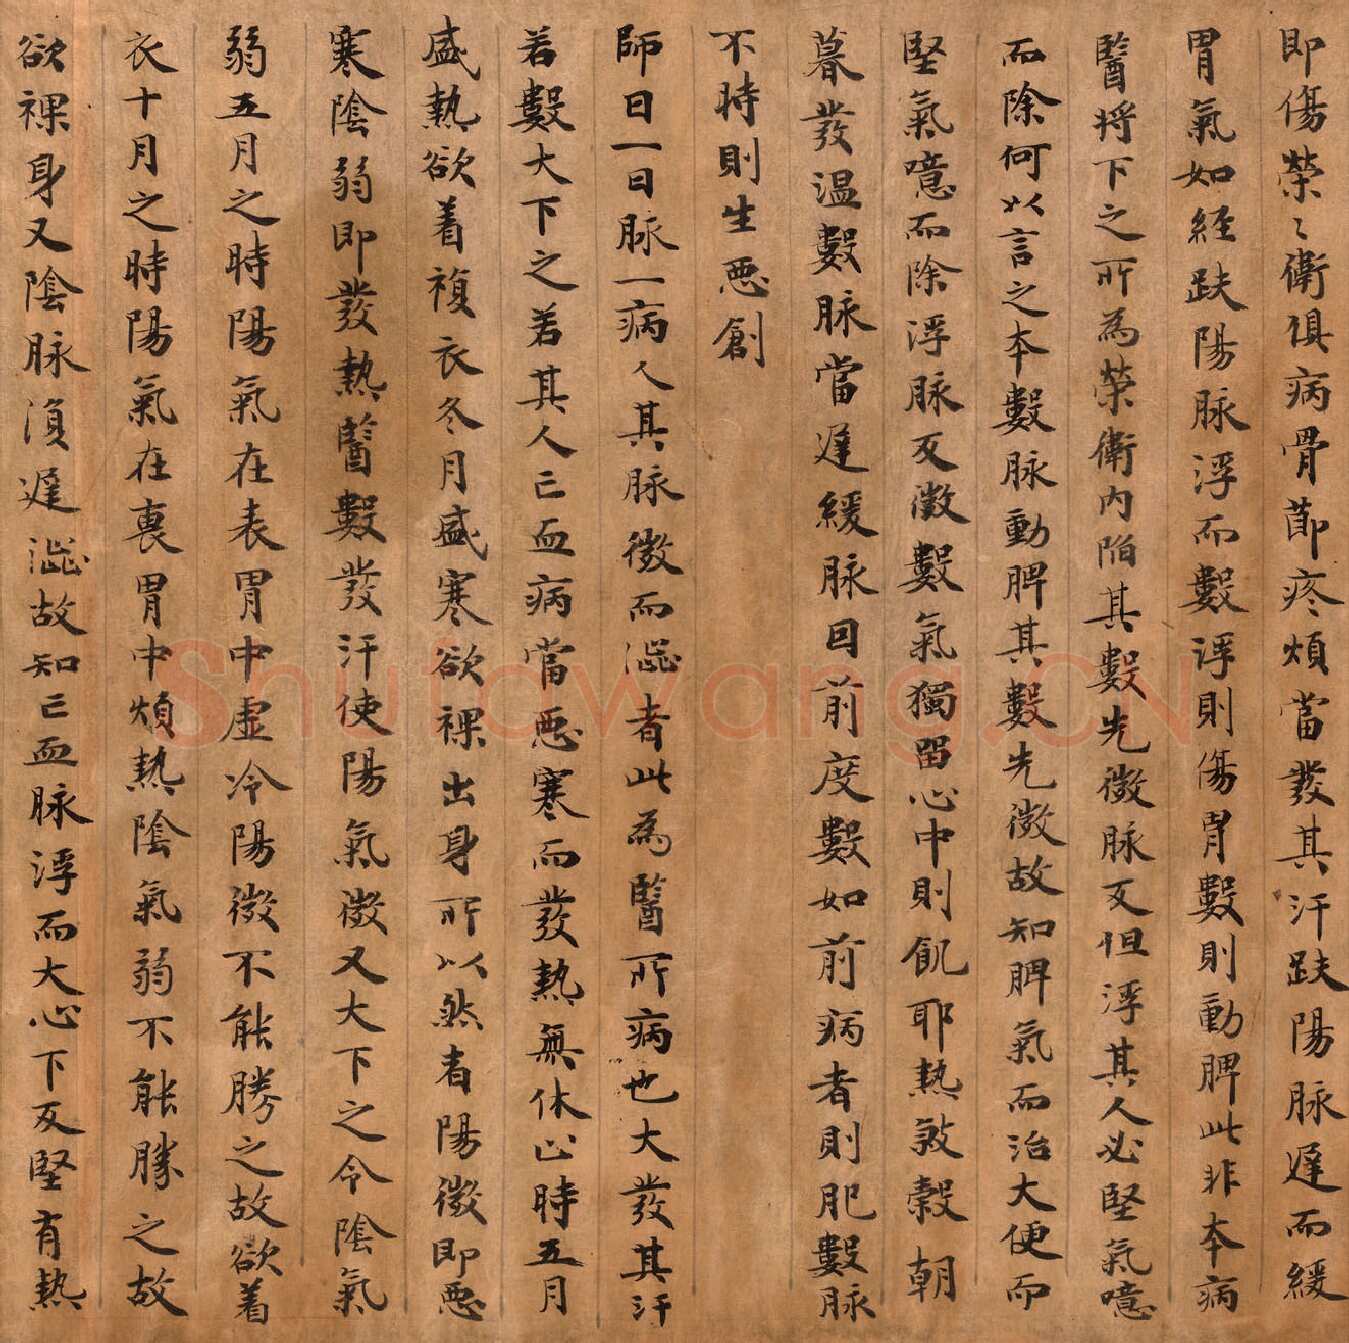 即傷榮〻衛俱病骨節疼煩當發其汗趺陽脉遲而緩
胃氣如經趺陽脉浮而數浮則傷胃數則動脾此非本病
醫將下之所為榮衛內陷其數先微脉反但浮其人必堅氣噫
而除何以言之本數脉動脾其數先微故知脾氣而治大便而
堅氣噫而除浮脉反微數氣獨留心中則飢耶熱敠穀朝
暮發温數脉當遲緩脉因前度數如前病者則肥數脉
不時則生惡創
師曰一日脉一病人其脉微而澁者此為醫所病也大發其汗
若數大下之若其人亡血病當惡寒而發熱無休止時五月
盛熱欲着複衣冬月盛寒欲裸出身所以然者陽微即惡
寒陰弱即發熱醫數發汗使陽氣微又大下之令陰氣
弱五月之時陽氣在表胃中虛冷陽微不能勝之故欲着
衣十月之時陽氣在裏胃中煩熱陰氣弱不能勝之故
欲裸身又陰脉湏遲澁故知亡血脉浮而大心下反堅有熱
Shufawang.CN